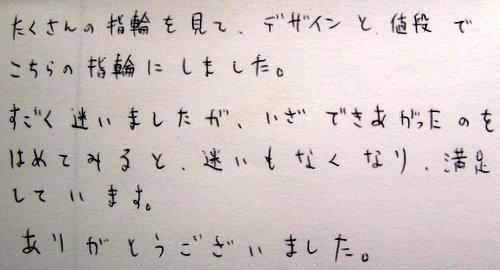 たくさんの指輪を見て、デザインと、値段で
こちらの指輪にしました。
すごく迷いましたが、いざできあがったのを
はめてみると、迷いもなくなり、満足
しています。
ありがとうございました。